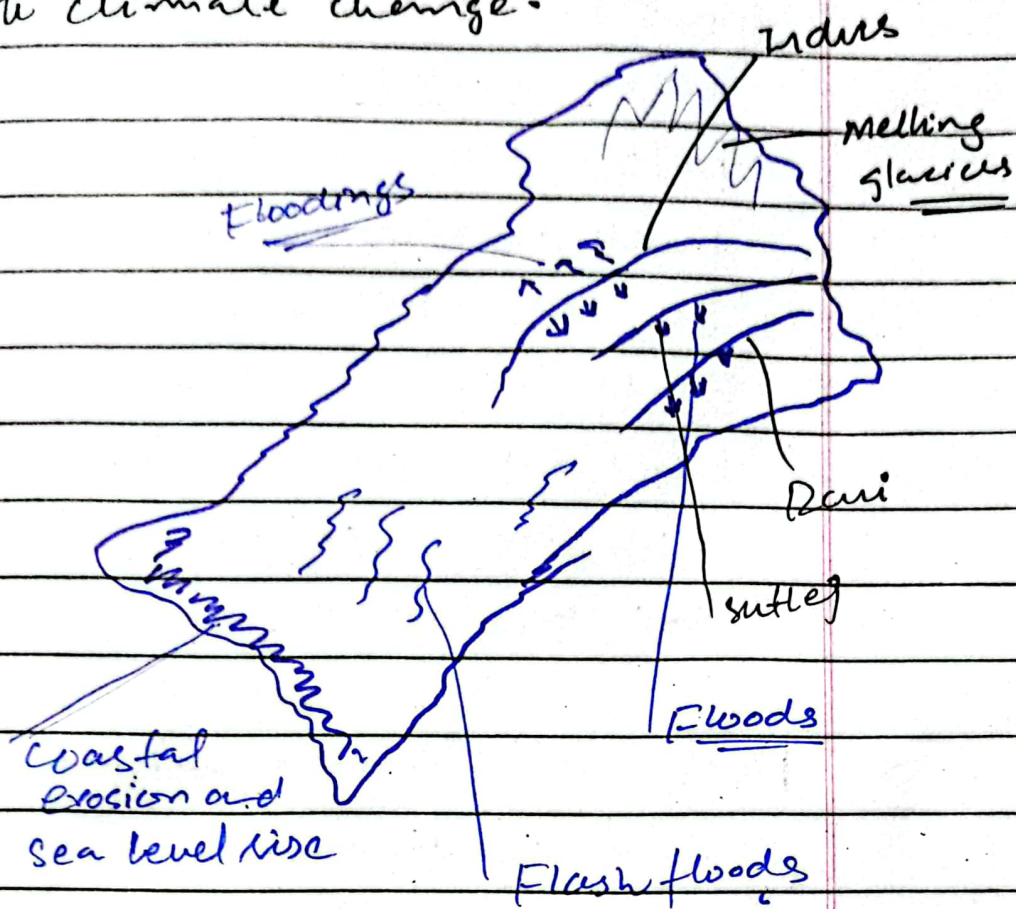 climate change.
Indus
Melting
glaciers
Floodings
Ravi
sutlej
Floods
coastal
erosion and
sea level rise
Flash floods